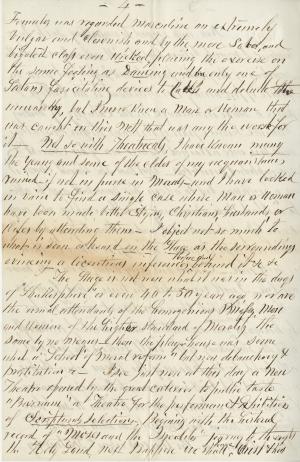 - 4 -
Females was regarded masculine an extremely
vulgar and clownish and by the more Sober, and
bigoted class even wicked placing the exercise on
the same footing as Dancing and only one of
Satans fascinating devices to and delude the
unwary, but I never knew a Man or Woman that
was caught in this Nett that was any the worse for
it — Not so with Theatricals, I have known many
the young and some of the older of my acquaintances
ruined if not in purse in Morals — and I have looked
in vain to find a single case where Man or Woman
have been made better Citizens, Christians, husbands or
Wifes by attending them — I object not so much to
what is seen or heard on the Stage as the surroundings
evincing a licentious influence before and behind the
The Stage is not now what it was in the days
of Shakespheare or even 40 to 50 years ago, nor are
the usual attendants of the times
and Women of the higher Standard of Morality the
same by no means — then the play house was some
what a School of Moral reform but now debauchery &
— I see just now at this day a New
Theatre opened by the great caterer to public taste
"Barnum" a Theatre for the performance & exhibition
of Scriptural Selections, Begining with the wicked
record of "Moses and the
the Holy Land, next perhaps we shall